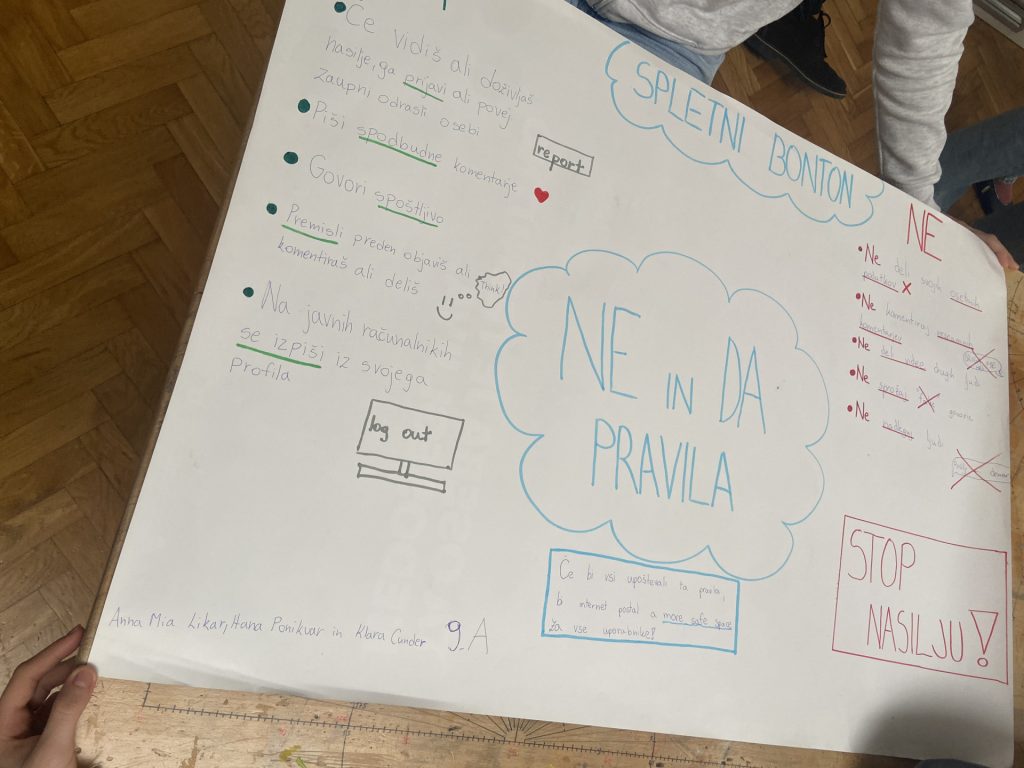 SPLETNI BONTON
Če vidiš ali doživljaš
nasilje, ga prijavi ali povej
zaupni odrasli osebi
Piši spodbudne komentarje
Govori spoštljivo
Premisli preden objaviš ali
komentiraš ali deliš
Na javnih računalnikih
se izpiši iz svojega
profila
report
Think!
log out
NE IN DA
PRAVILA
Če bi vsi upoštevali ta pravila,
bi internet postal a more safe space
za vse uporabnike!
NE
Ne deli svojih osebnih
podatkov
Ne komentiraj
komentarjev
Ne deli videov drugih ljudi
Ne sprožaj govoric
Ne nadleguj ljudi
STOP
NASILJU!
Anna Mia Likar, Hana Ponikvar in Klara Cunder 9.A